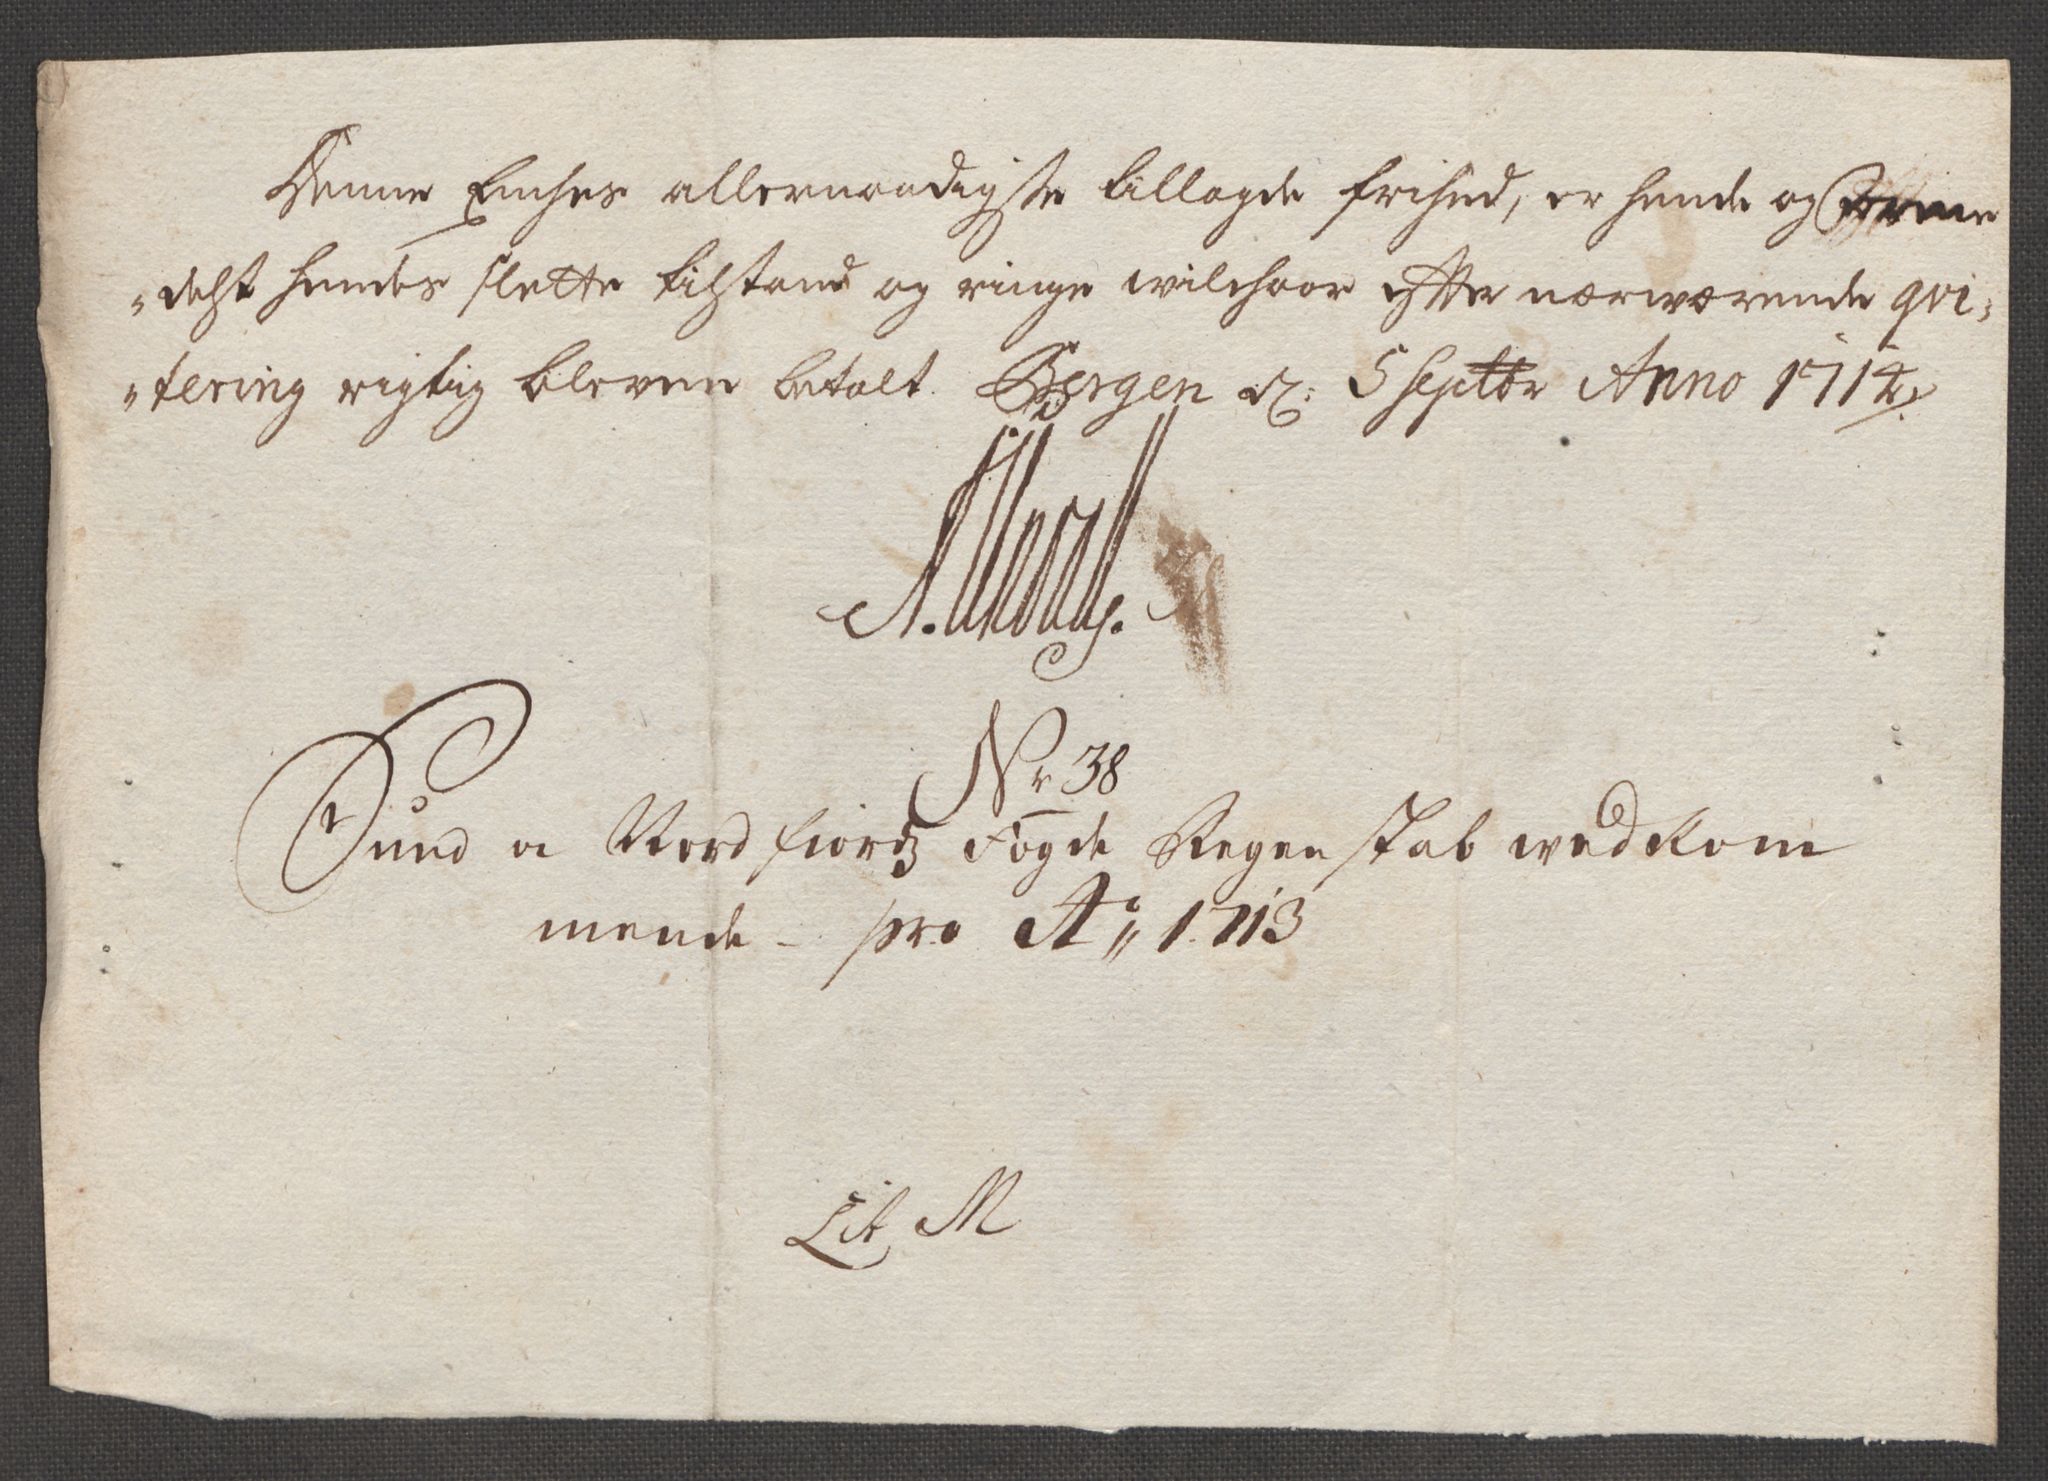 Denne Enches allernaadigste tillagde frihed, er hende og forme
"delst hendes slette tilstand og ringe wilchaar effter nærwærende qvi,
"tering rigtig bleven betalt. Bergen d: 5 septbr Anno 1714.
Nr 38
Sund o Nordfiordz Fogde Regenskab wedkom
mende - pro Ao 1713
Lit M